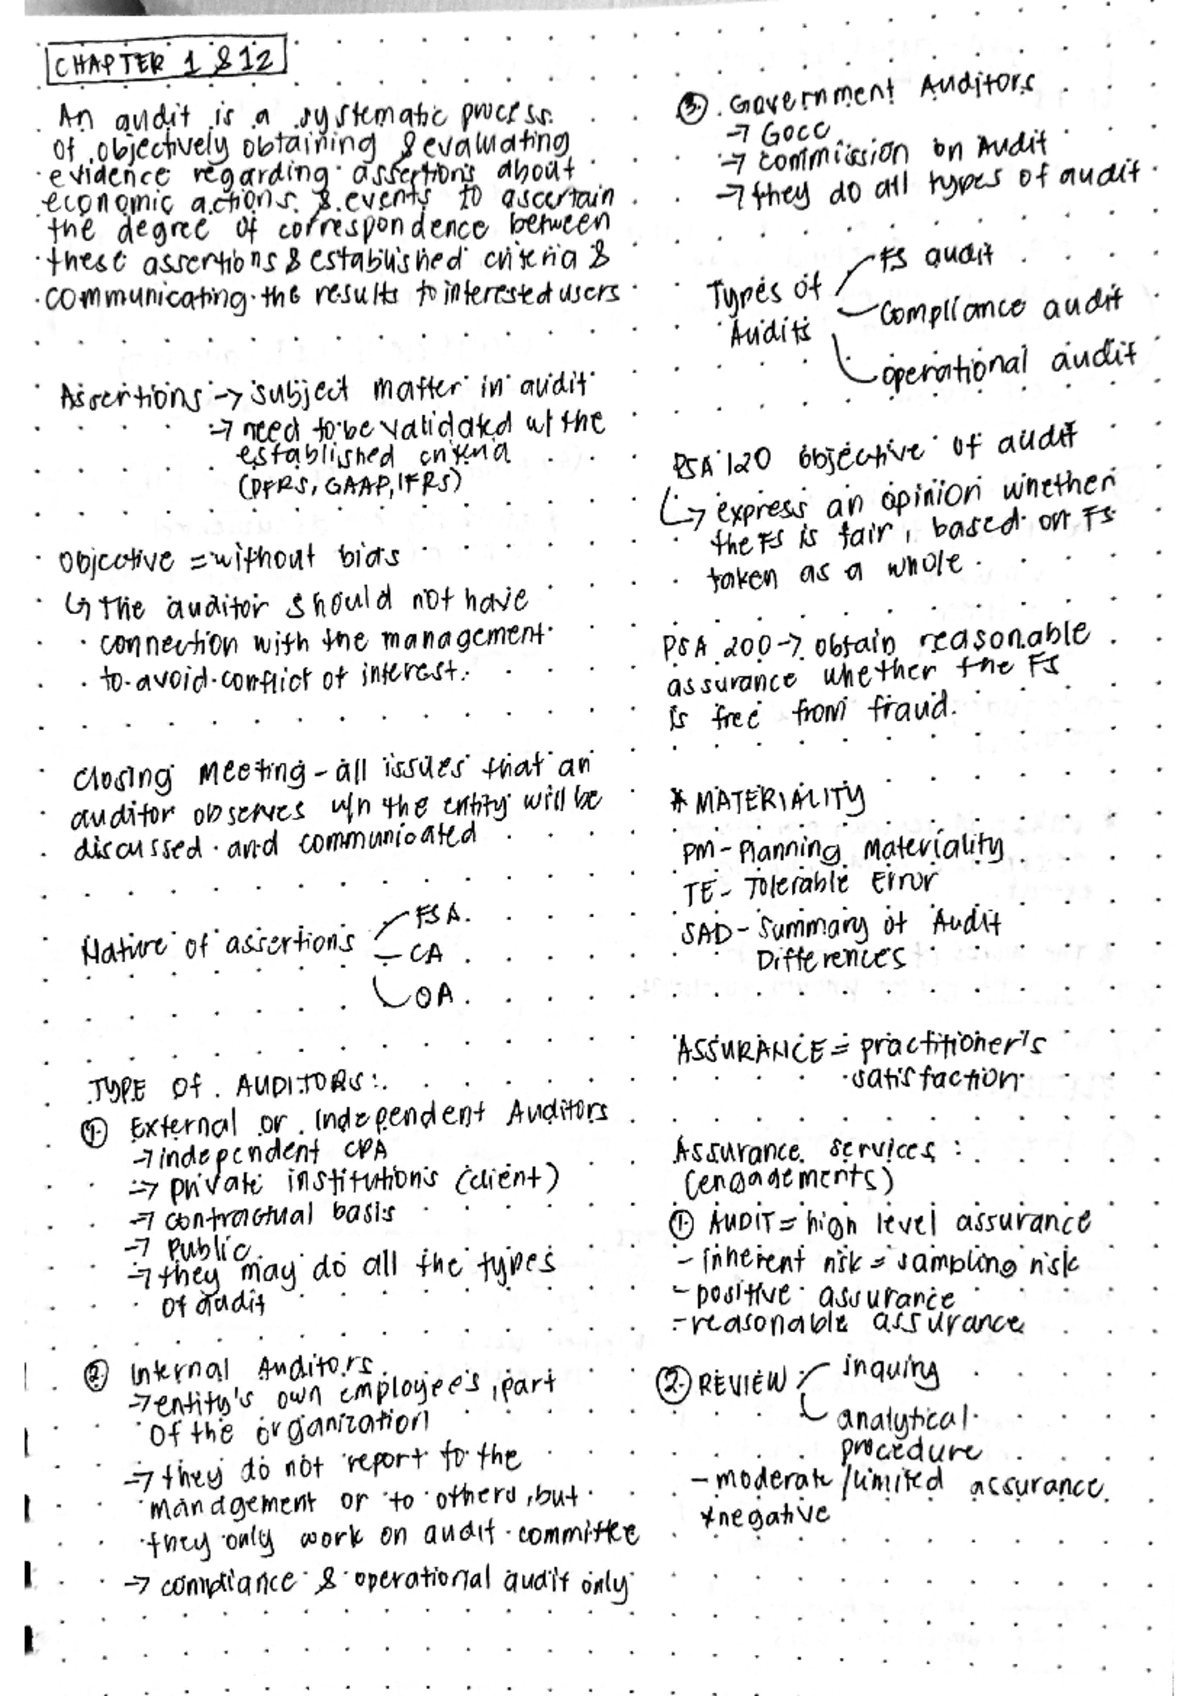 CHAPTER 1 & 12
An audit is a systematic process
of objectively obtaining & evaluating
evidence regarding assertions about
economic actions & events to ascertain
the degree of correspondence between
these assertions & established criteria &
communicating the results to interested users
Assertions → subject matter in audit
→ need to be validated w/ the
established criteria
(PFRS, GAAP, IFRS)
Objective = without bias
↳ The auditor should not have
connection with the management
to avoid conflict of interest.
Closing Meeting - all issues that an
auditor observes w/n the entity will be
discussed and communicated
Nature of assertions
FSA
CA
OA
TYPE OF AUDITORS:
1. External or Independent Auditors
→ independent CPA
→ private institutions (client)
→ contractual basis
→ Public
→ they may do all the types
of audit
2. Internal Auditors
→ entity's own employees, part
of the organization
→ they do not report to the
management or to others, but
they only work on audit committee
→ compliance & operational audit only
3. Government Auditors
→ GOCC
→ Commission on Audit
→ they do all types of audit
Types of Audits
FS audit
Compliance audit
operational audit
PSA 120 objective of audit
↳ express an opinion whether
the FS is fair, based on FS
taken as a whole.
PSA 200 → obtain reasonable
assurance whether the FS
is free from fraud.
* MATERIALITY
PM - Planning Materiality
TE - Tolerable Error
SAD - Summary of Audit
Differences
ASSURANCE = practitioner's
satisfaction
Assurance services:
(engagements)
1. AUDIT = high level assurance
- inherent risk = sampling risk
- positive assurance
- reasonable assurance
2. REVIEW
inquiry
analytical
procedure
- moderate / limited assurance
* negative